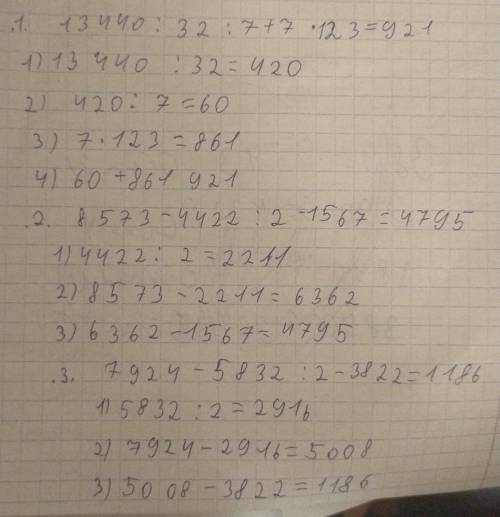 .1. 13440 : 32 : 7 + 7 · 123 = 921
1) 13 440 : 32 = 420
2) 420 : 7 = 60
3) 7 · 123 = 861
4) 60 + 861 921
.2. 8573 - 4422 : 2 - 1567 = 4795
1) 4422 : 2 = 2211
2) 8573 - 2211 = 6362
3) 6362 - 1567 = 4795
.3. 7924 - 5832 : 2 - 3822 = 1186
1) 5832 : 2 = 2916
2) 7924 - 2916 = 5008
3) 5008 - 3822 = 1186